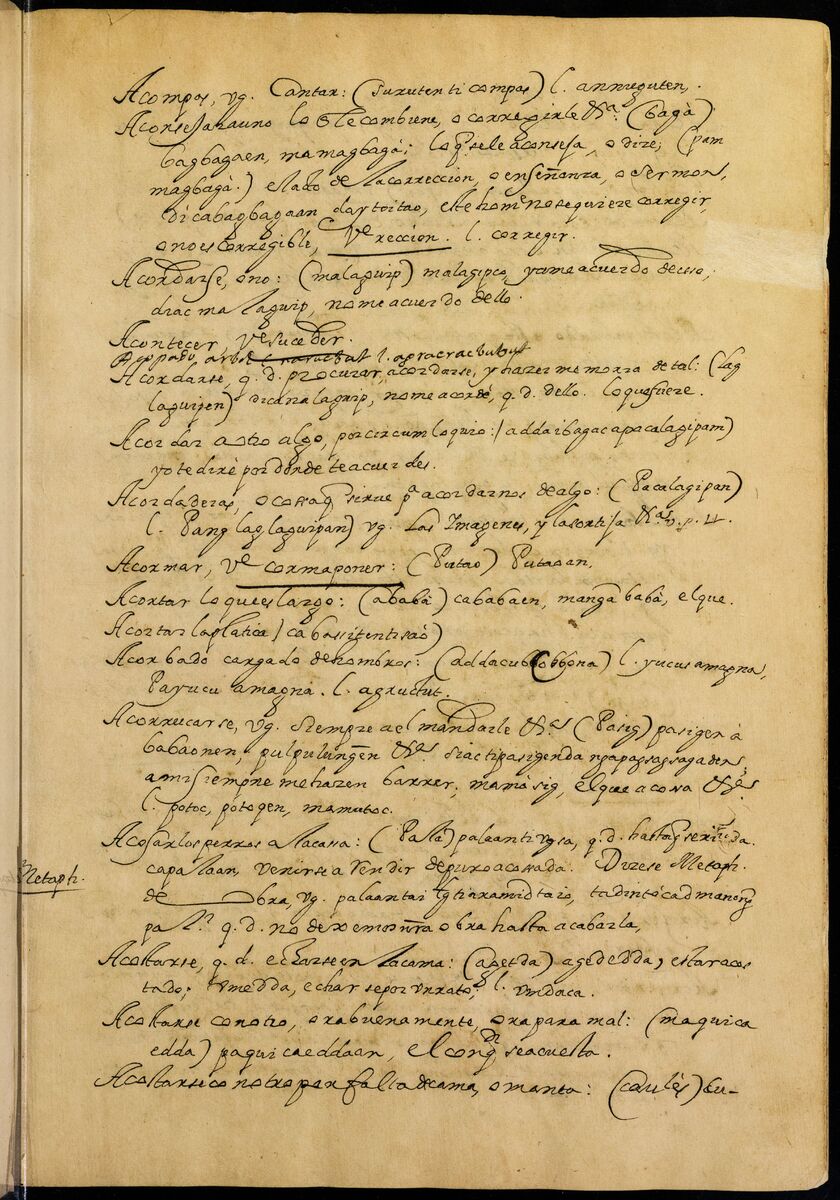 Acompas, vg. Cantar: (surutenti compas) l. annuguten.
Aconsejar a uno lo q̃ le combiene, o corregirle &ª. (bagà)
bagbagaen, mamagbagà; lo q̃ se le aconseja, o dize; (pam
magbagà.) el acto de la correccion, o enseñanza, o sermon,
dicabagbagaan daytoitao, este homᵉ no se quiere corregir,
o no es corregible, Vᵉ reccion. l. corregir.
Acordarse, o no: (malaguip) malagipco, ya me acuerdo de esso,
diac malaguip, no me acuerdo dello.
Acontecer, Vᵉ suceder.
l. apracracbubut
Acordarse, q. d. procurar, acordarse, y hazer memoria de tal: (lag
laguipen) dicanalaguip, no me acordè, q. d. dello. lo que fuere.
Acordàr a otro algo, por circumloquio: / addaibagac apacalagipam)
yo te dirè por donde te acuerdes.
Acordaderas, o cossa q̃ sirve pª acordarnos de algo: (Pacalagipan)
l. Panglaglaguipan) vg. Las Imagenes, y la sortija &ª.
Acormar, Vᵉ cormaponer: (Putao) Putaoan.
Acortar lo que es largo: (ababà) cababaen, mangababà, el que.
Acortar la platica / cabassitentisaò)
Acorbado cargado de hombros: l. yucus amagna,
Payucu amagna. l. agructut.
Acorrucarse, vg. siempre a el mandarle &ª (Pasig) pasigen à
babaonen, pulpulungen &ª.
a mi siempre me hazen barrer, mamàsig, el que acosa &ª
l. potoc, potogen, mamutoc.
Acosar los perros a la cassa: (Palà) palaanti vgsa, q. d. hasta q̃ se rinda.
capalaan, venirse a rendir de puro acossada. Dizese Metaph.
Metaph.
de obra, vg. palaantai
q. d. no dexemos ñra obra hasta acabarla,
Acostarse, q. d. echarse en la cama: (agedda) agededda, estar acos
tado; umedda, echarse por un rato; l. umdaca.
Acostarse con otro, ora buenamente, ora para mal: (maquica
edda) paquicaeddaan, el con q̃ se acuesta.
Acostarse con otro por falta de cama, o manta: (caulès) cu-